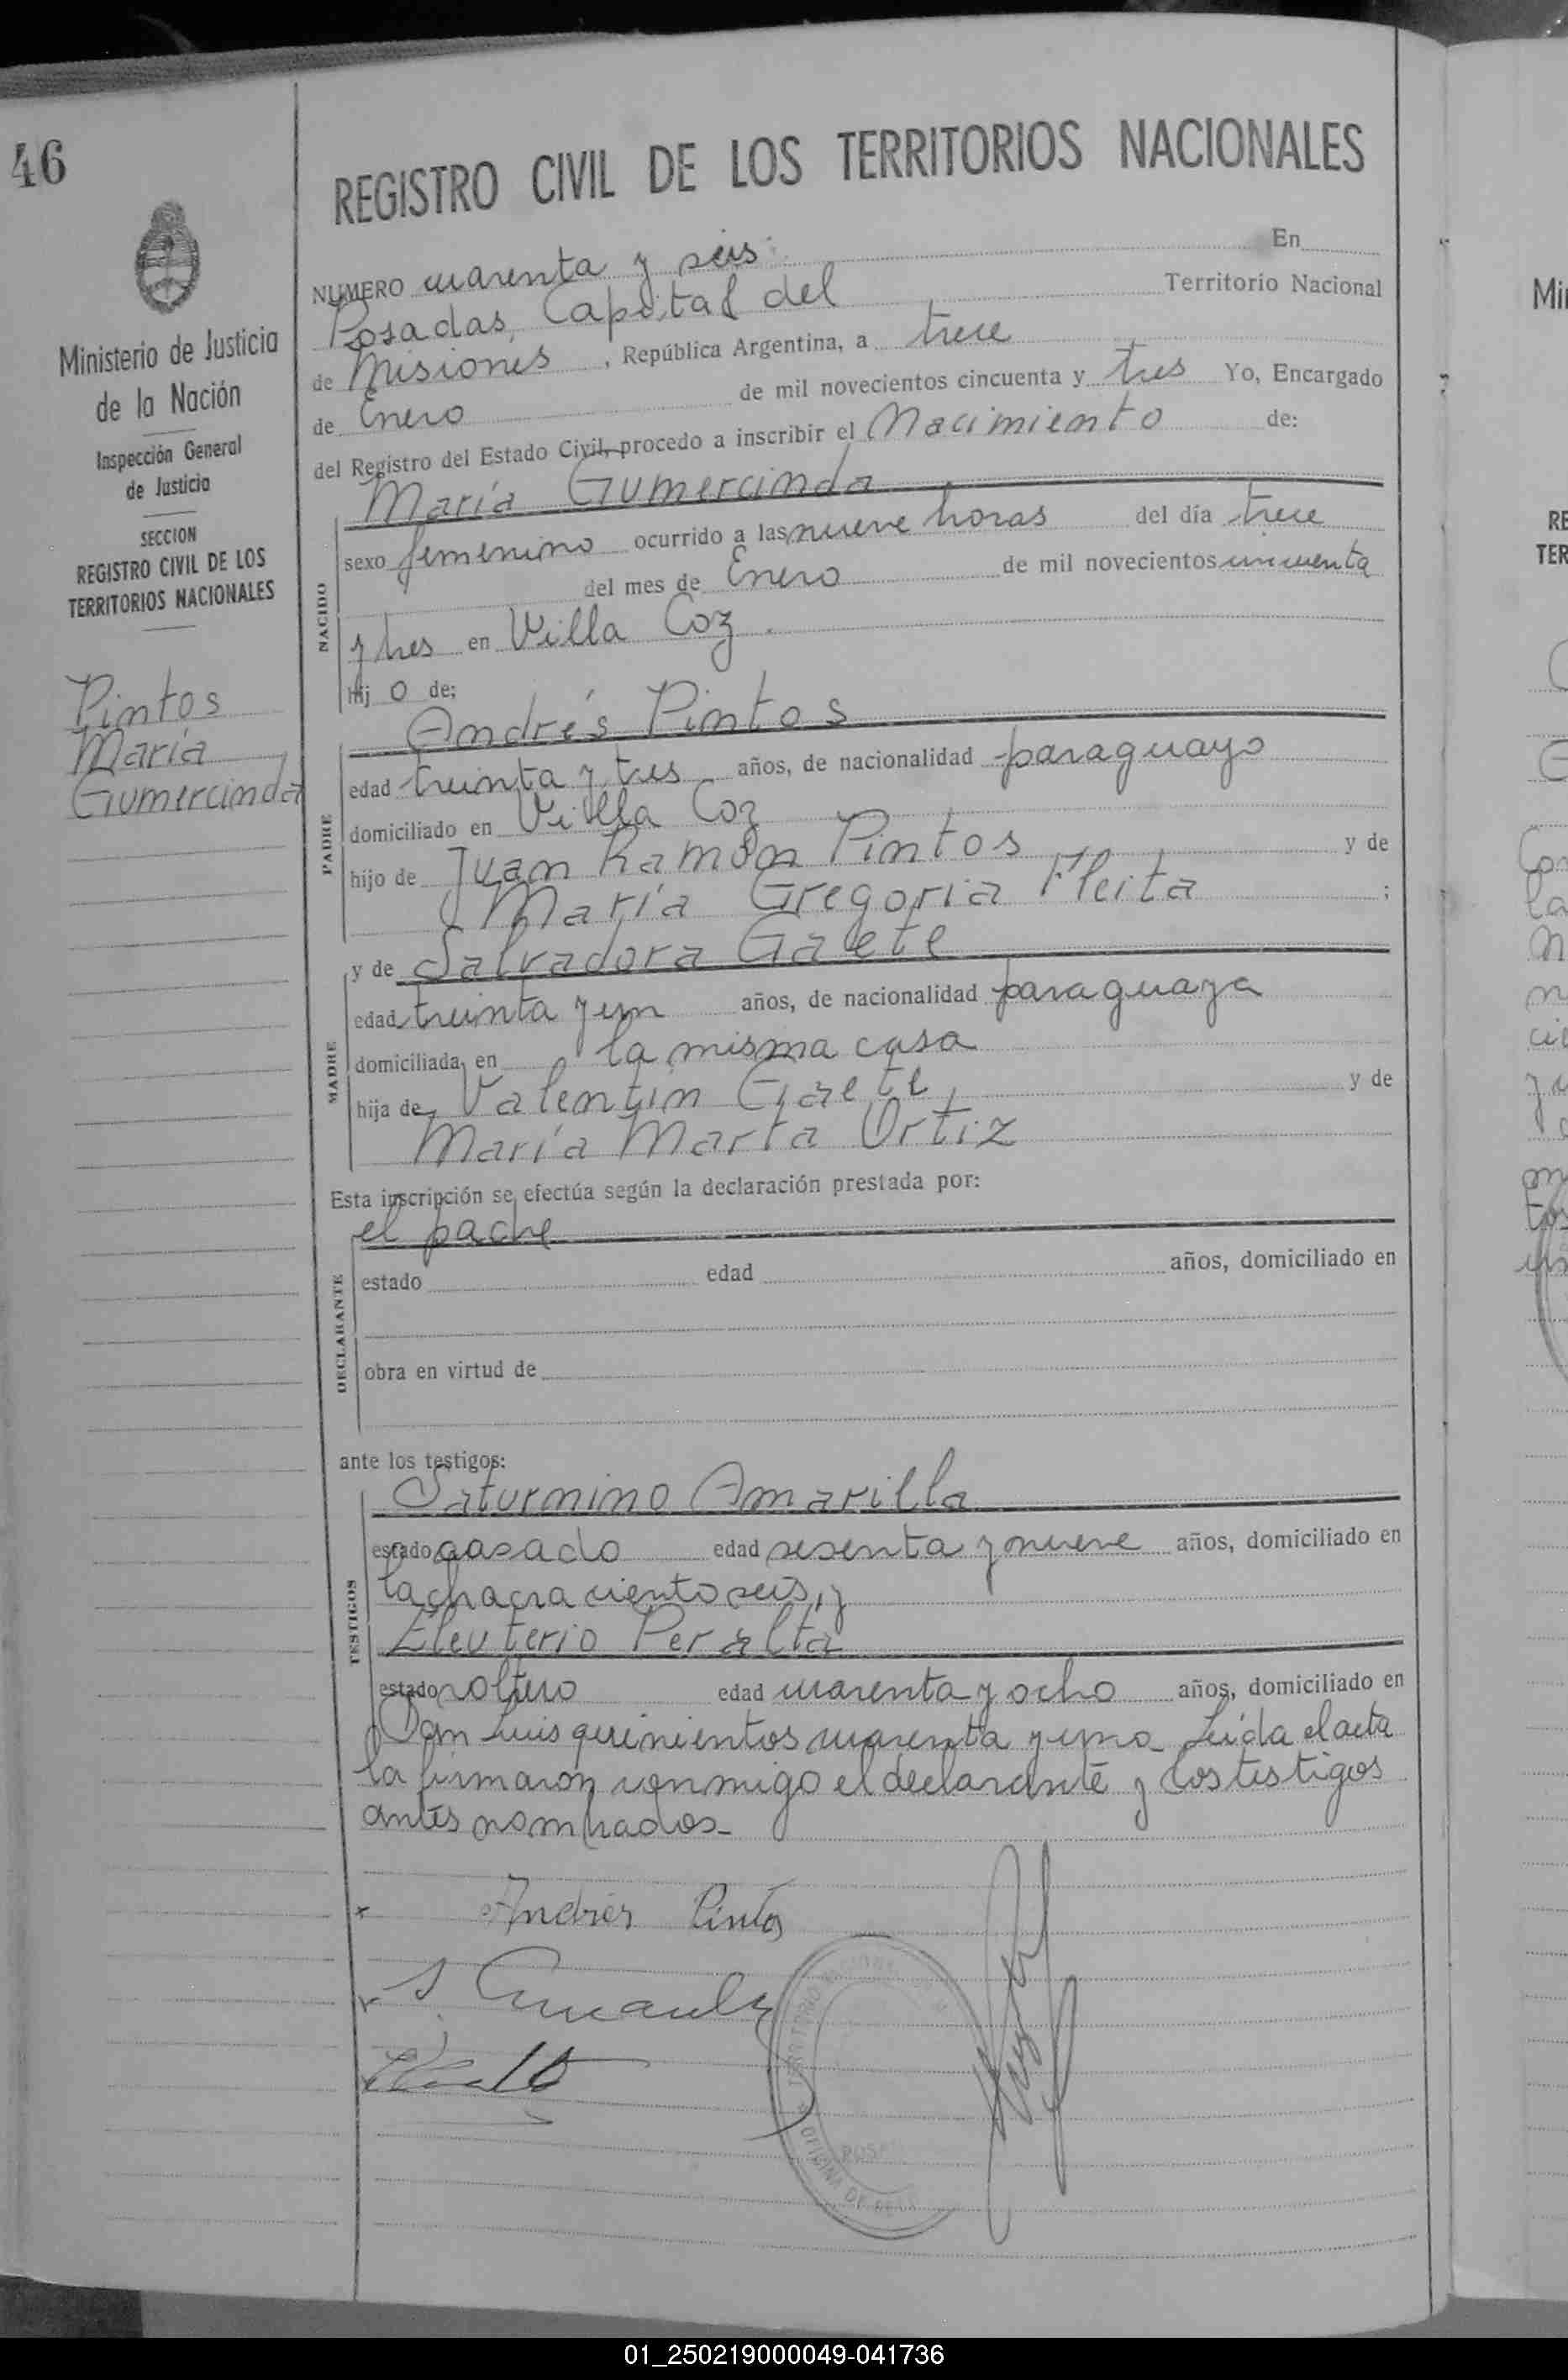 46
Ministerio de Justicia
de la Nación
Inspección General
de Justicia
SECCION
REGISTRO CIVIL DE LOS
TERRITORIOS NACIONALES
Pintos
María
Gumercinda
REGISTRO CIVIL DE LOS TERRITORIOS NACIONALES
NUMERO cuarenta y seis. En
Posadas, Capital del Territorio Nacional
de Misiones, República Argentina, a trece
de Enero de mil novecientos cincuenta y tres Yo, Encargado
del Registro del Estado Civil, procedo a inscribir el Nacimiento de:
María Gumercinda
NACIDO
sexo femenino ocurrido a las nueve horas del día trece
del mes de Enero de mil novecientos cincuenta
y tres en Villa Coz.
hij o de:
Andrés Pintos
PADRE
edad treinta y tres años, de nacionalidad paraguayo
domiciliado en Villa Coz
hijo de Juan Ramón Pintos y de
María Gregoria Fleita ;
y de Salvadora Gaete
MADRE
edad treinta y un años, de nacionalidad paraguaya
domiciliada en la misma casa
hija de Valentín Gaete, y de
María Marta Ortiz
Esta inscripción se efectúa según la declaración prestada por:
el padre
DECLARANTE
estado edad años, domiciliado en
obra en virtud de
ante los testigos:
Saturnino Amarilla
TESTIGOS
estado casado edad sesenta y nueve años, domiciliado en
la chacra ciento seis, y
Eleuterio Peralta
estado soltero edad cuarenta y ocho años, domiciliado en
San Luis quinientos cuarenta y uno. Leída el acta
la firmaron conmigo el declarante y los testigos
antes nombrados.
Andrés Pintos
OFICINA DE
01_250219000049-041736